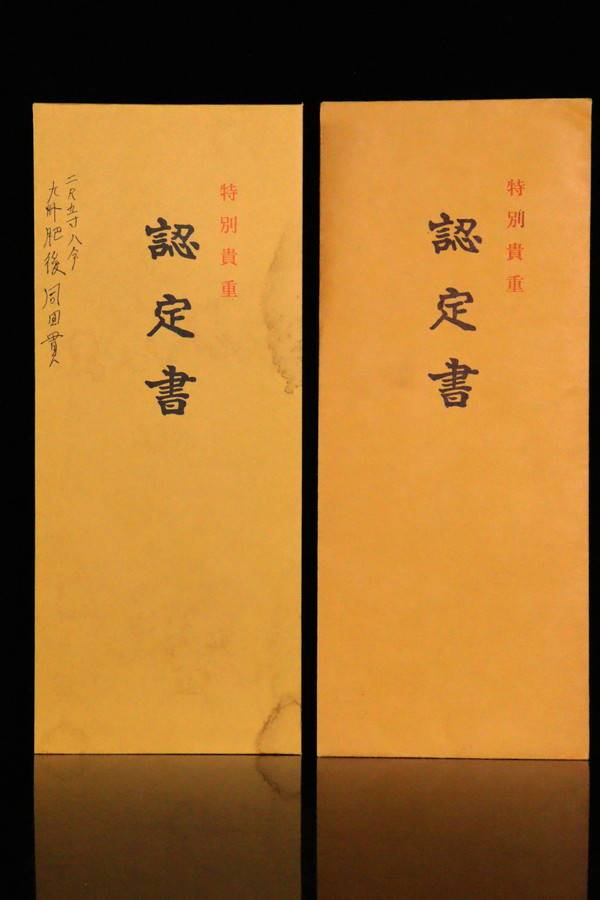 特別貴重
認定書
二尺五寸八分
九州肥後同田貫
特別貴重
認定書